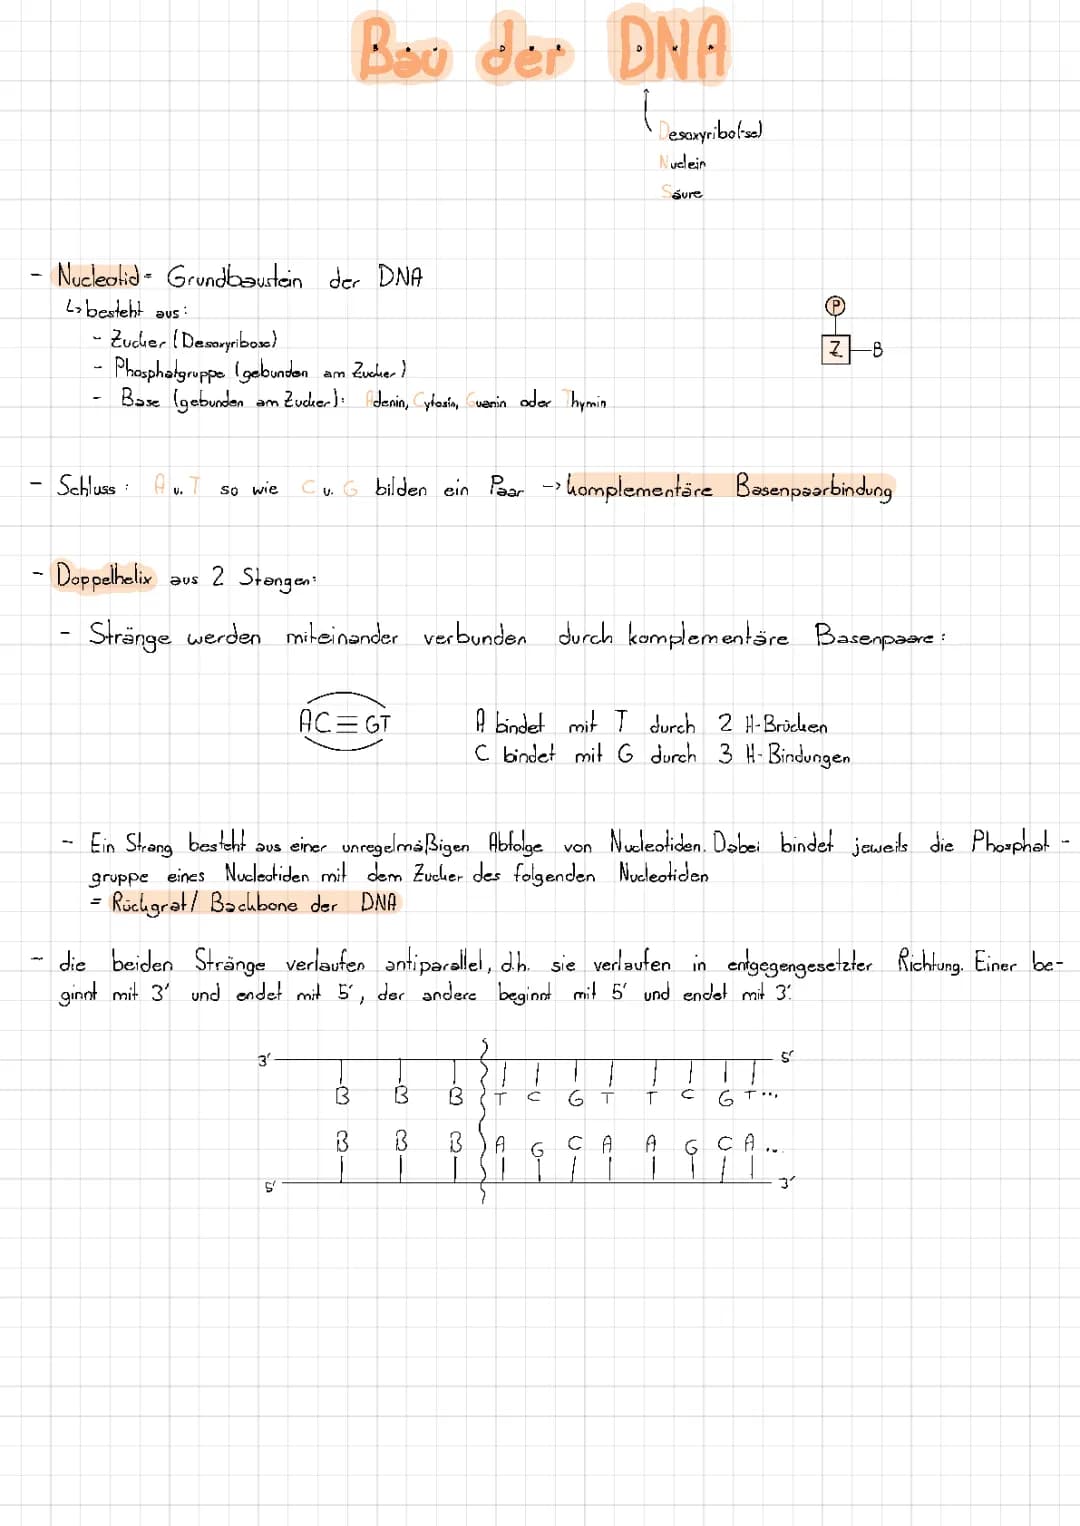 Bau der DNA
Desoxyribo(-se)
Nuclein
Säure
- Nucleotid = Grundbaustein der DNA
↳ besteht aus:
- Zucker (Desoxyribose)
- Phosphatgruppe (gebunden am Zucker)
- Base (gebunden am Zucker): Adenin, Cytosin, Guanin oder Thymin
P
Z - B
- Schluss: A u. T so wie C u. G bilden ein Paar -> komplementäre Basenpaarbindung
- Doppelhelix aus 2 Stangen:
- Stränge werden miteinander verbunden durch komplementäre Basenpaare:
AC≡GT
A bindet mit T durch 2 H-Brücken
C bindet mit G durch 3 H-Bindungen
- Ein Strang besteht aus einer unregelmäßigen Abfolge von Nucleotiden. Dabei bindet jeweils die Phosphat-
gruppe eines Nucleotiden mit dem Zucker des folgenden Nucleotiden
= Rückgrat / Backbone der DNA
- die beiden Stränge verlaufen antiparallel, d.h. sie verlaufen in entgegengesetzter Richtung. Einer be-
ginnt mit 3' und endet mit 5', der andere beginnt mit 5' und endet mit 3'.
3' 5'
B B B T C G T T C G T ...
B B B A G C A A G C A ...
5' 3'